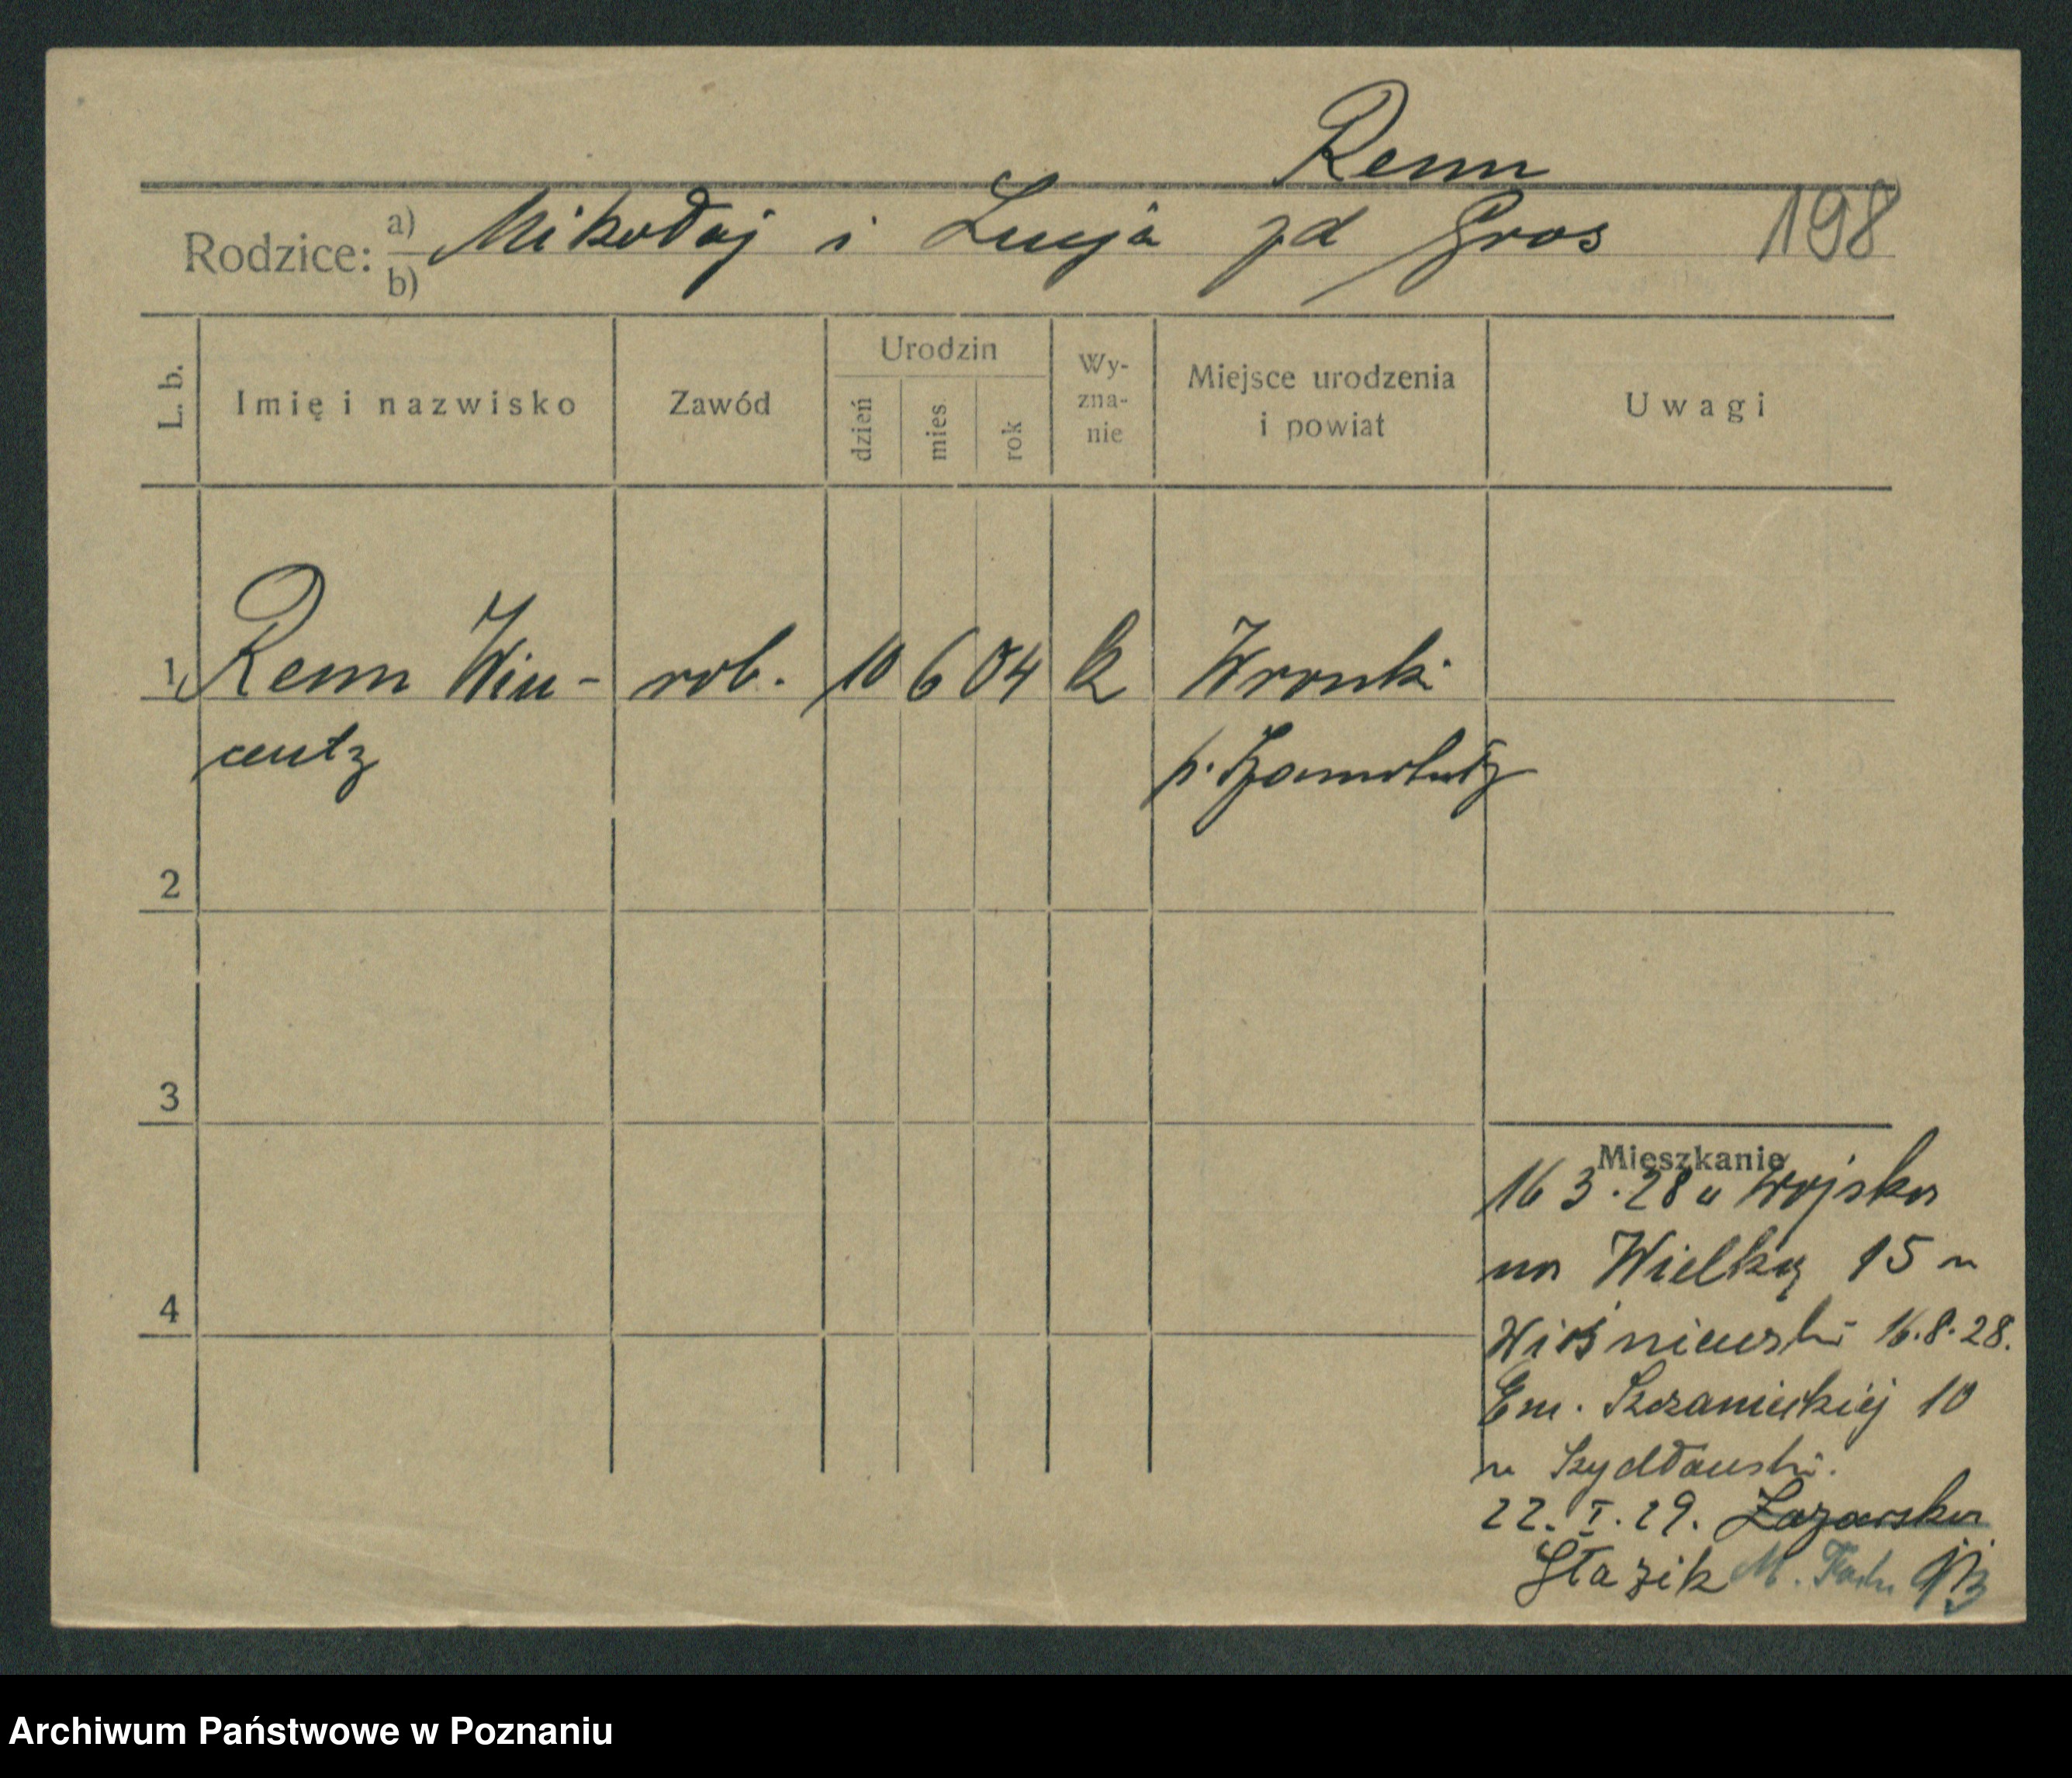 Renn
Rodzice: a) Mikołaj i Łucja zd Gros 198
b)
L. b. Imię i nazwisko Zawód Urodzin dzień mies. rok Wy-zna-nie Miejsce urodzenia i powiat Uwagi
1 Renn Win- rob. 10 6 04 k Wronki
centz p. Szamotuły
2
3
4
Mieszkanie
16 3. 28 u Wojska
na Wielką 15 u
Wiśniewski 16.8.28.
Em. Szczanieckiej 10
u Szydłowski.
22. I. 29. Łazarska
Głazik M. Foch 93
Archiwum Państwowe w Poznaniu